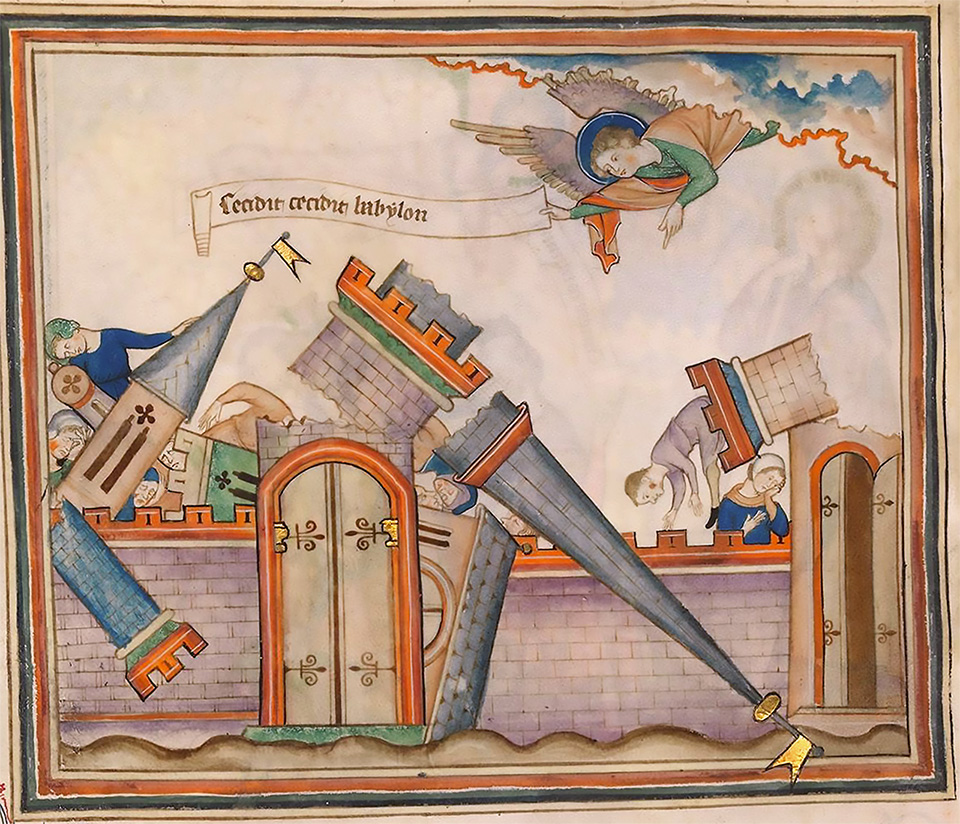 Cecidit cecidit babylon